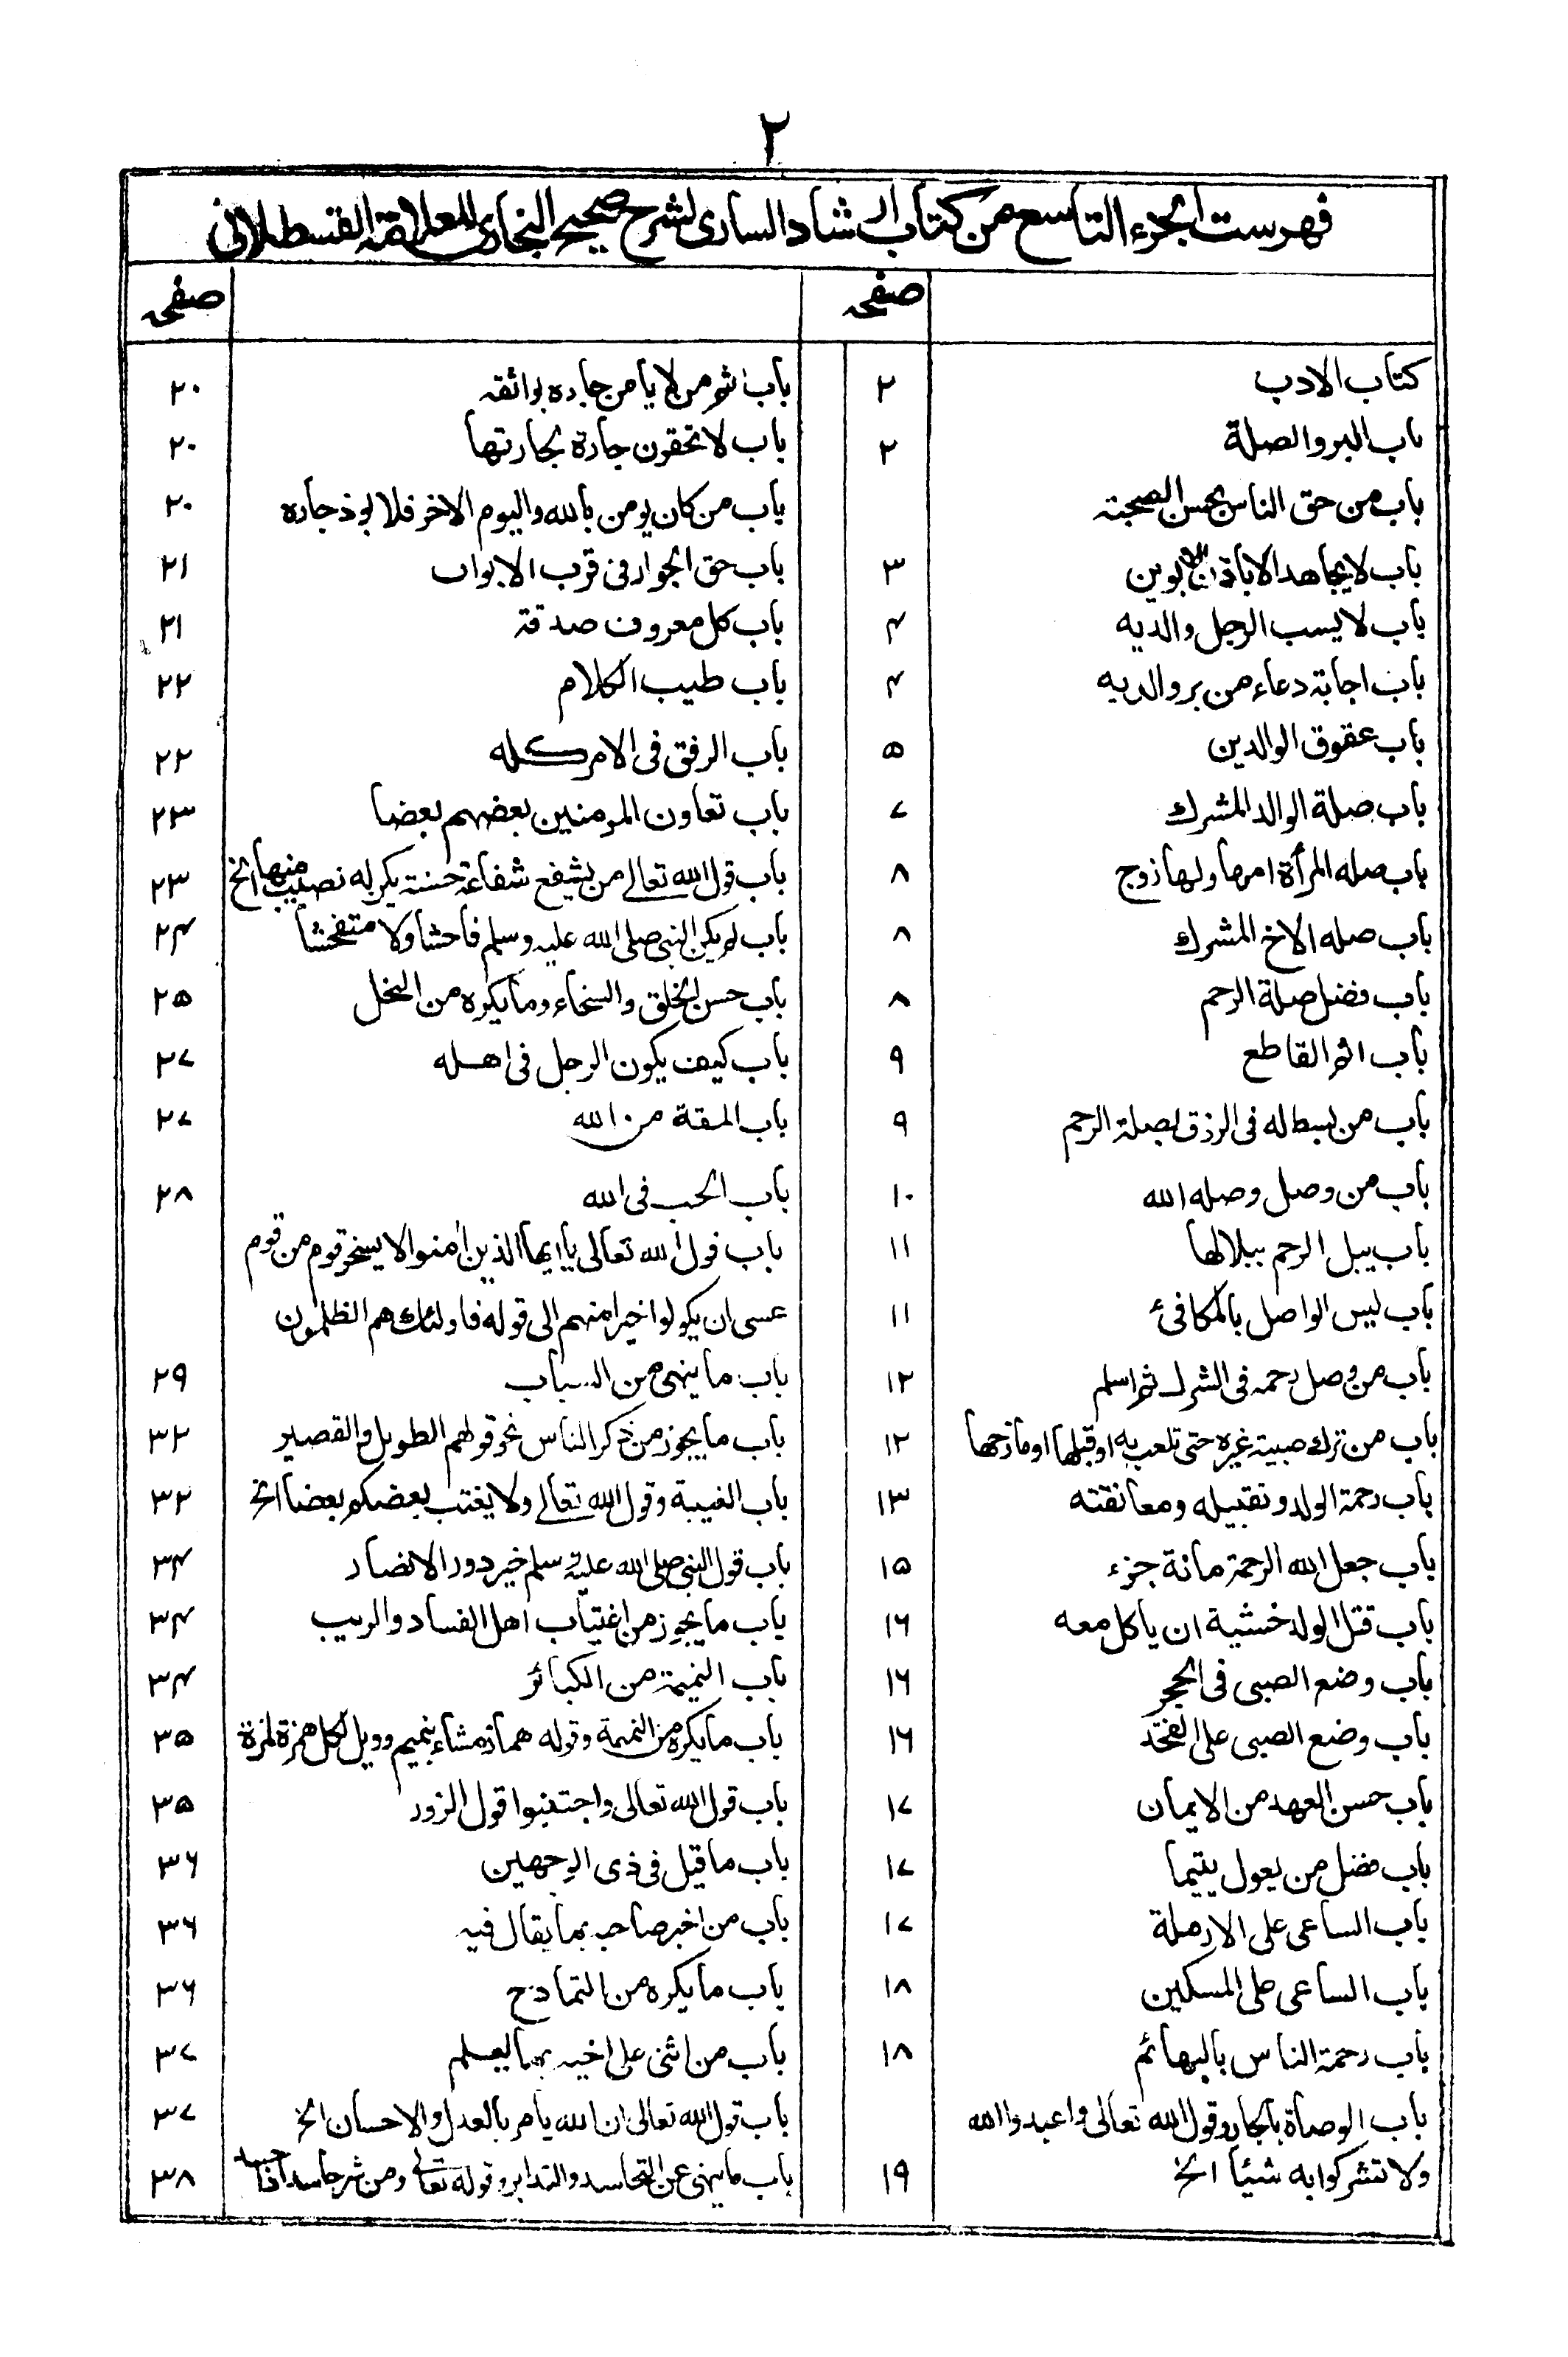 ۲
فهرست الجزء التاسع من كتاب ارشاد الساری لشرح صحیح البخاری للعلامة القسطلانی
صفحه
كتاب الادب ۲
باب البر والصلة ۲
باب من حق الناس بحسن الصحبته
باب لا يجاهد الا باذن الابوين ۳
باب لا يسب الرجل والديه ۴
باب اجابة دعاء من بر والديه ۴
باب عقوق الوالدين ۵
باب صلة الوالد المشرك ۷
باب صله المرأة امها ولها زوج ۸
باب صله الاخ المشرك ۸
باب فضل صلة الرحم ۸
باب اثم القاطع ۹
باب من بسط له فی الرزق بصلة الرحم ۹
باب من وصل وصله الله ۱۰
باب يبل الرحم ببلالها ۱۱
باب ليس الواصل بالمكافئ ۱۱
باب من وصل رحمه فی الشرك ثم اسلم ۱۲
باب من ترك صبية غيره حتى تلعب به او قبلها او مازحها ۱۲
باب رحمة الولد وتقبيله ومعانقته ۱۳
باب جعل الله الرحمة مائة جزء ۱۵
باب قتل الولد خشية ان ياكل معه ۱۶
باب وضع الصبی فی الحجر ۱۶
باب وضع الصبی على الفخذ ۱۶
باب حسن العهد من الايمان ۱۷
باب فضل من يعول يتيما ۱۷
باب الساعی على الارملة ۱۷
باب الساعی على المسكين ۱۸
باب رحمة الناس بالبهائم ۱۸
باب الوصاة بالجار وقول الله تعالى واعبدوا الله
ولا تشركوا به شيئا الخ ۱۹
صفحه
باب اثم من لا يأمن جاره بوائقه ۲۰
باب لا تحقرن جارة لجارتها ۲۰
باب من كان يومن بالله واليوم الاخر فلا يوذ جاره ۲۰
باب حق الجوار فی قرب الابواب ۲۱
باب كل معروف صدقة ۲۱
باب طيب الكلام ۲۲
باب الرفق فی الامر كله ۲۲
باب تعاون المومنين بعضهم بعضا ۲۳
باب قول الله تعالے من يشفع شفاعة حسنة يكن له نصيب منها الخ ۲۳
باب لم يكن النبی صلی الله عليه وسلم فاحشا ولا متفحشا ۲۴
باب حسن الخلق والسخاء وما يكره من البخل ۲۵
باب كيف يكون الرجل فی اهله ۲۷
باب المقة من الله ۲۷
باب الحب فی الله ۲۸
باب قول الله تعالى يا ايها الذين امنوا لا يسخر قوم من قوم
عسى ان يكونوا خيرا منهم الى قوله فاولئك هم الظلمون
باب ما ينهى من السباب ۲۹
باب ما يجوز من ذكر الناس نحو قولهم الطويل والقصير ۳۲
باب الغيبة وقول الله تعالے ولا يغتب بعضكم بعضا الخ ۳۲
باب قول النبی صلی الله عليه وسلم خير دور الانصار ۳۴
باب ما يجوز من اغتياب اهل الفساد والريب ۳۴
باب النميمة من الكبائر ۳۴
باب ما يكره من النميمة وقوله هماز مشاء بنميم وويل لكل همزة لمزة ۳۵
باب قول الله تعالى واجتنبوا قول الزور ۳۵
باب ما قيل فی ذی الوجهين ۳۶
باب من اخبر صاحبه بما يقال فيه ۳۶
باب ما يكره من التمادح ۳۶
باب من اثنى على اخيه بما يعلم ۳۷
باب قول الله تعالى ان الله يأمر بالعدل والاحسان الخ ۳۷
باب ما ينهى عن التحاسد والتدابر وقوله تعالے ومن شر حاسد اذا حسد ۳۸